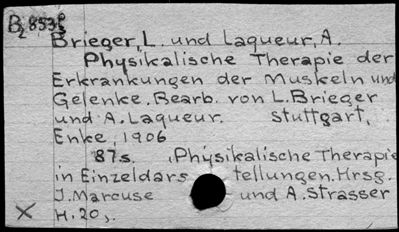 B2 853
Brieger, L. und Laqueur, A.
Physikalische Therapie der
Erkrankungen der Muskeln und
Gelenke. Bearb. von L. Brieger
und A. Laqueur. Stuttgart,
Enke, 1906
87s. (Physikalische Therapie
in Einzeldarstellungen. Hrsg.
J. Marcuse und A. Strasser
X H. 20).